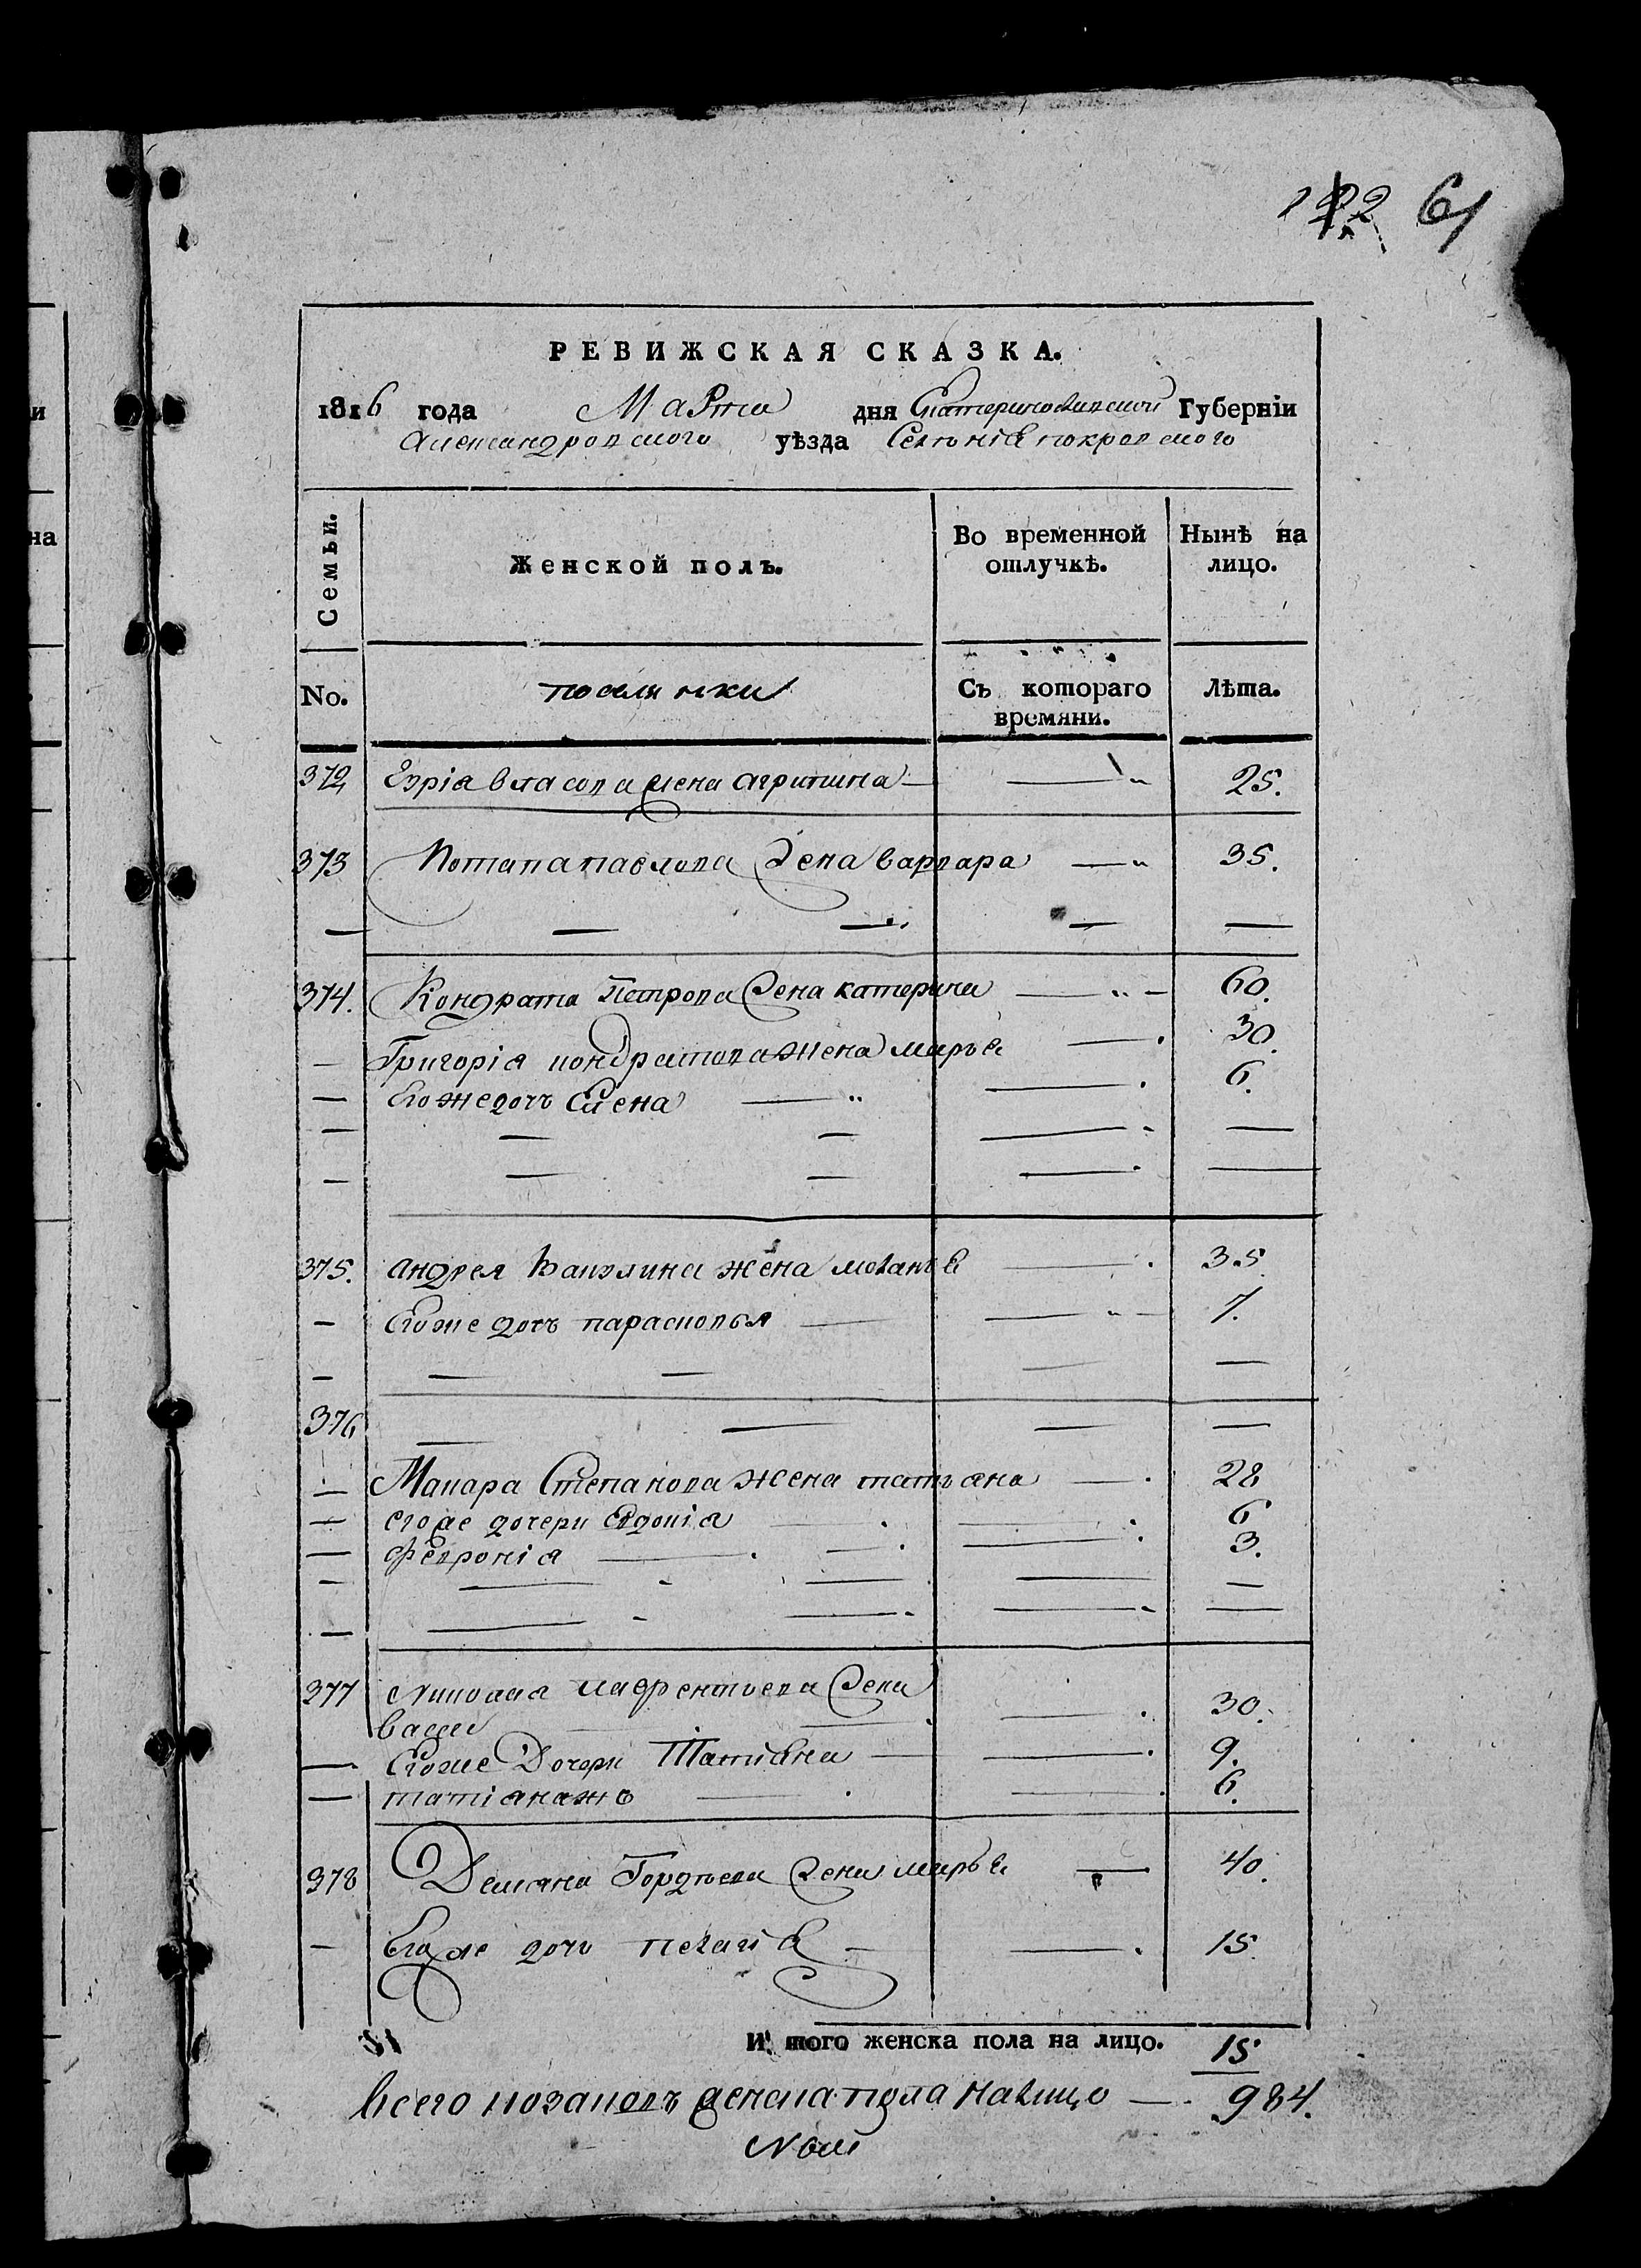 61
РЕВИЖСКАЯ СКАЗКА.
1816 года Марта дня Екатеринославской Губерніи
Александровского уѣзда Селѣнія покровского
Семьи.
Женской полъ.
Во временной отлучкѣ.
Нынѣ на лицо.
No.
Съ котораго времяни.
Лѣта.
372 власова жена агрипина — — 25.
373 Потапа павлова жена варвара — 35.
— — — — —
374. Кондрата Петрова жена катерина — — 60.
— Григорія кондратова жена марья — 30.
— Его же дочь Елена — — 6.
— — — — —
— — — — —
375. андрея жена меланья — 35
— Его же дочь парасковья — — 7.
— — — — —
376 — — — —
— Макара Степанова жена татьяна — 28
— его же дочери Евдокіа — — 6
— Февроніа — — — 3.
— — — — —
— — — — —
377 Николая лаврентьева жена
васса — — — 30.
— Его же Дочери Татіяна — — 9.
— татіана жъ — — 6.
378 Демяна Гордѣева жена марья — 40.
— Его же дочь пелагія — — 15.
И того женска пола на лицо. 15
Всего козаковъ женска пола на лицо — 984.